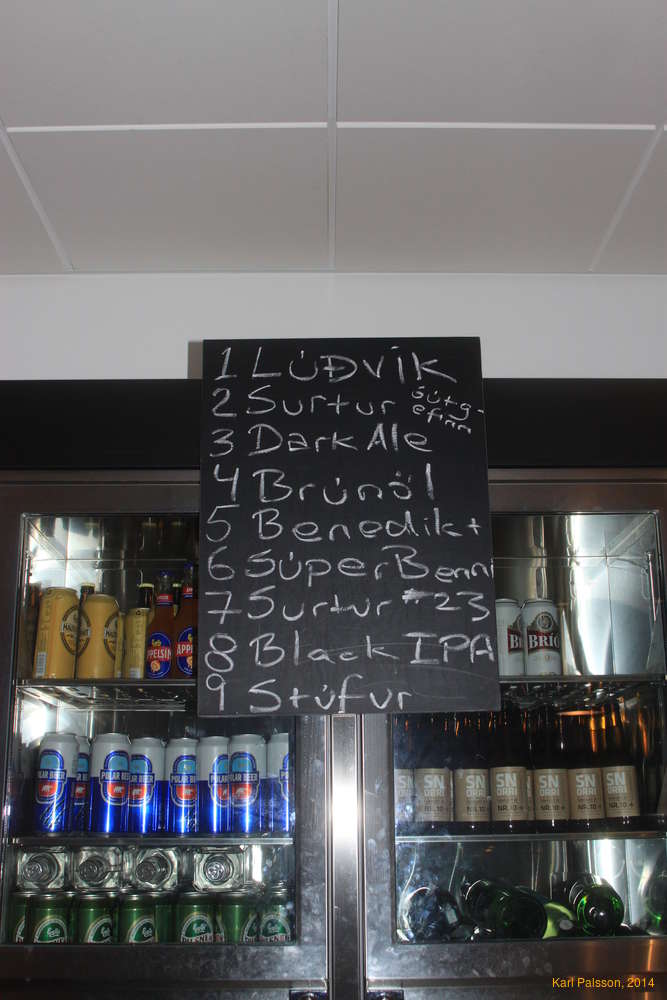 1 LÚÐVÍK
2 Surtur sútg-
efinn
3 Dark Ale
4 Brúnöl
5 Benedikt
6 SúperBenni
7 Surtur #23
8 Black IPA
9 Stúfur
APPELSÍN
APPELSÍN
BRÍÓ
POLAR BEER
POLAR BEER
POLAR BEER
POLAR BEER
POLAR BEER
POLAR BEER
SNORRI
NR.10
SN
ORRI
NR.10
SN
ORRI
NR.10
SN
ORRI
NR.10
SN
ORRI
NR.10
Karl Palsson, 2014